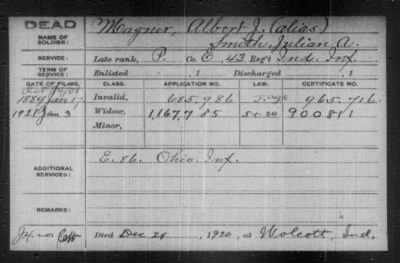 DEAD
NAME OF SOLDIER:
Magner, Albert J. (alias)
Smith, Julian A.
SERVICE:
Late rank, P. Co. E, 43 Reg't Ind. Inf.
TERM OF SERVICE:
Enlisted , 1 Discharged , 1
DATE OF FILING. CLASS. APPLICATION NO. LAW. CERTIFICATE NO.
1889 Jan 17 Invalid, 685,986 965,716
1921 Jan 3 Widow, 1,167,785 5-1-20 900811
Minor,
E. 86. Ohio Inf.
ADDITIONAL SERVICES:
REMARKS:
Died Dec 21, 1920, at Wolcott, Ind.